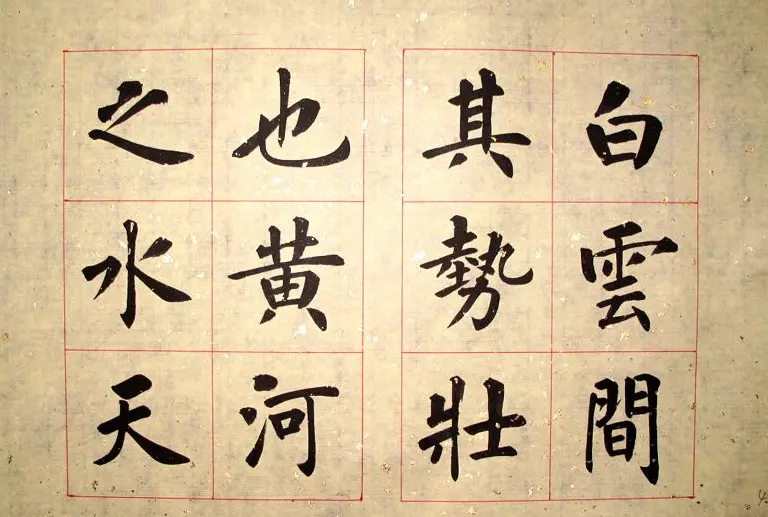 白雲間
其勢壯
也黄河
之水天